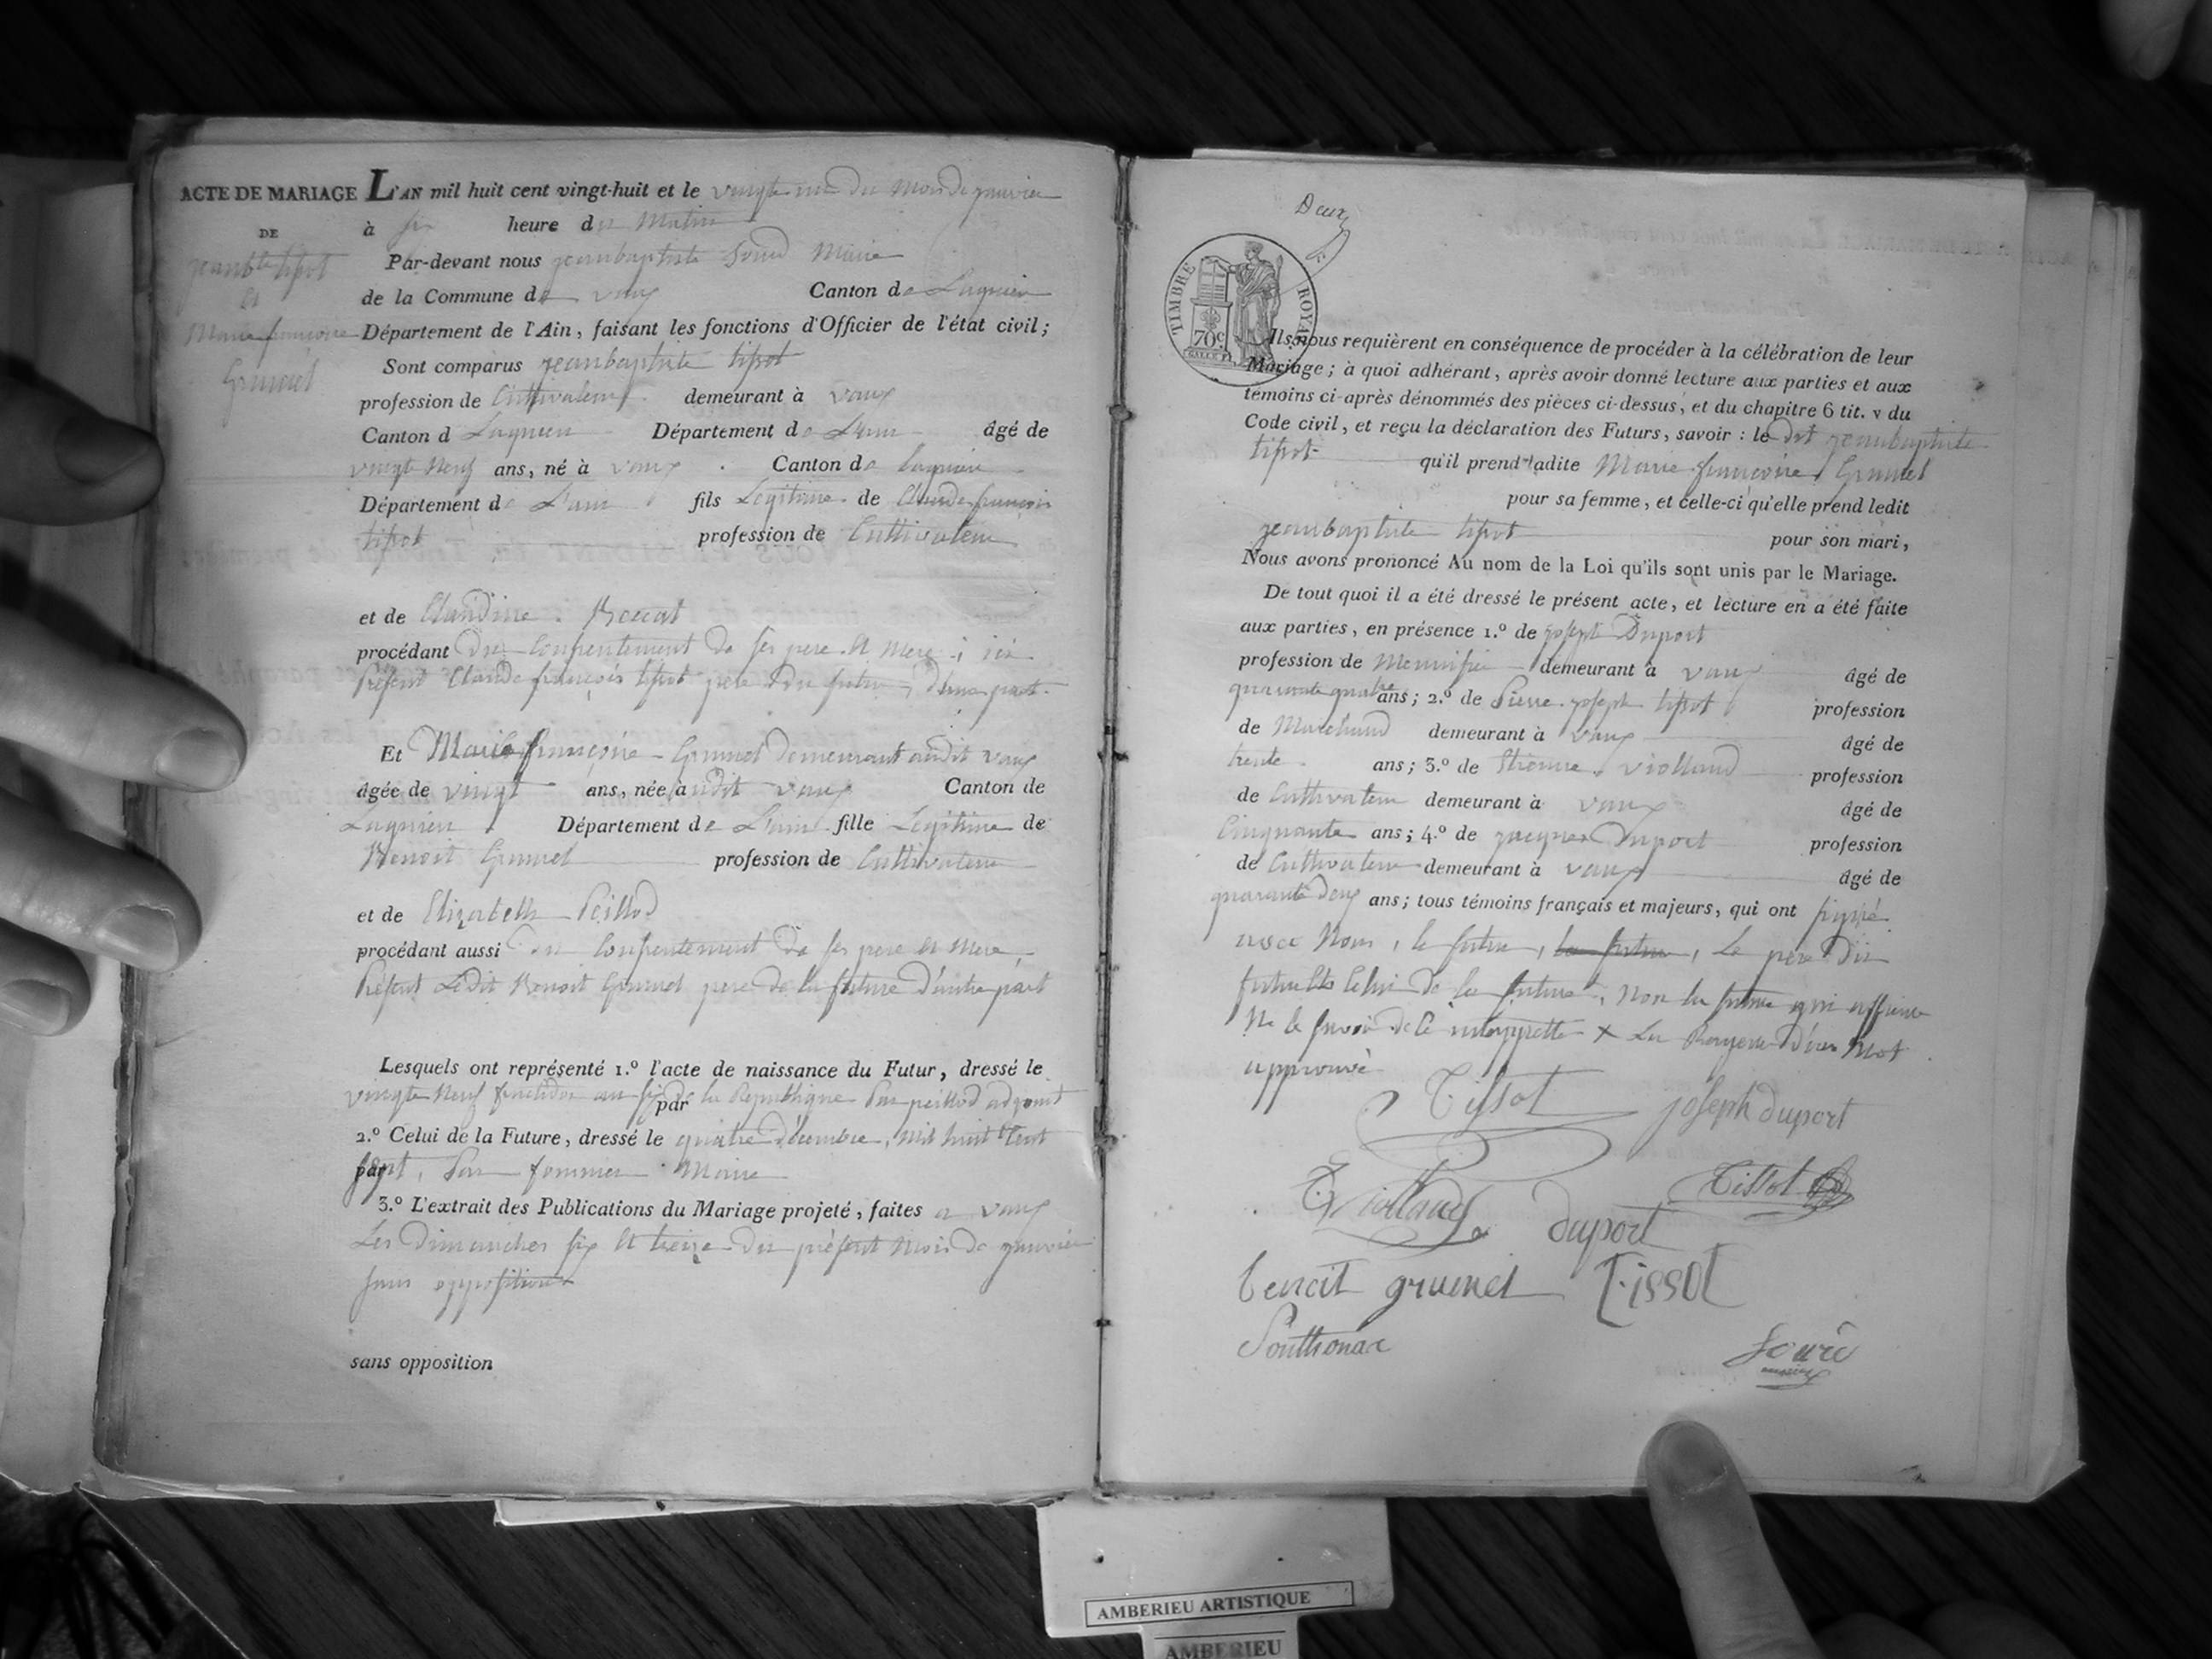 ACTE DE MARIAGE
DE
jean bte tissot
et
Marie françoise
Grumel
L'AN mil huit cent vingt-huit et le vingt un du Mois de janvier
à six heure du Matin
Par-devant nous jeanbaptiste Maire
de la Commune de vaux Canton de Lagnieu
Département de l'Ain, faisant les fonctions d'Officier de l'état civil;
Sont comparus jeanbaptiste tissot
profession de Cultivateur demeurant à vaux
Canton d Lagnieu Département de L'ain âgé de
vingt Neuf ans, né à vaux Canton de lagnieu
Département de L'ain fils Légitime de Claude françois
tissot profession de Cultivateur
et de Claudine
procédant du Consentement de ses pere et Mere, ici
Présent Claude françois tissot pere du futur, d'une part
Et Marie françoise Grumel demeurant audit vaux
âgée de vingt ans, née audit vaux Canton de
Lagnieu Département de L'ain fille Légitime de
Benoit Grumel profession de Cultivateur
et de Elizabeth Peillod
procédant aussi du Consentement de ses pere et Mere,
Présent Ledit Benoit Grumel pere de la future d'autre part
Lesquels ont représenté 1.º l'acte de naissance du Futur, dressé le
vingt Neuf fructidor an six de la République Par peillod adjoint
par
2.º Celui de la Future, dressé le quatre décembre, mil huit Cent
par sept, Par fournier Maire
3.º L'extrait des Publications du Mariage projeté, faites a vaux
Les dimanches six et treize du présent Mois de janvier
sans opposition
sans opposition
AMBERIEU ARTISTIQUE
AMBERIEU
Deux
TIMBRE ROYAL
70c
Ils nous requièrent en conséquence de procéder à la célébration de leur
Mariage; à quoi adhérant, après avoir donné lecture aux parties et aux
témoins ci-après dénommés des pièces ci-dessus, et du chapitre 6 tit. v du
Code civil, et reçu la déclaration des Futurs, savoir: le dit jeanbaptiste
tissot qu'il prend ladite Marie françoise Grumel
pour sa femme, et celle-ci qu'elle prend ledit
jeanbaptiste tissot pour son mari,
Nous avons prononcé Au nom de la Loi qu'ils sont unis par le Mariage.
De tout quoi il a été dressé le présent acte, et lecture en a été faite
aux parties, en présence 1.º de joseph Duport
profession de Menuisier demeurant à vaux âgé de
quarante quatre ans; 2.º de Pierre joseph tissot profession
de Marchand demeurant à vaux âgé de
trente ans; 3.º de Etienne violland profession
de Cultivateur demeurant à vaux âgé de
Cinquante ans; 4.º de jacques Duport profession
de Cultivateur demeurant à vaux âgé de
quarante deux ans; tous témoins français et majeurs, qui ont signé
avec Nous, le futur, la future, Le pere du
futur et Celui de la future, Non la future qui affirme
Ne le savoir de Ce interpellée X La Rayure d'un Mot
approuvé
Tissot joseph duport
E Violland Tissot
duport
benoit grumel Tissot